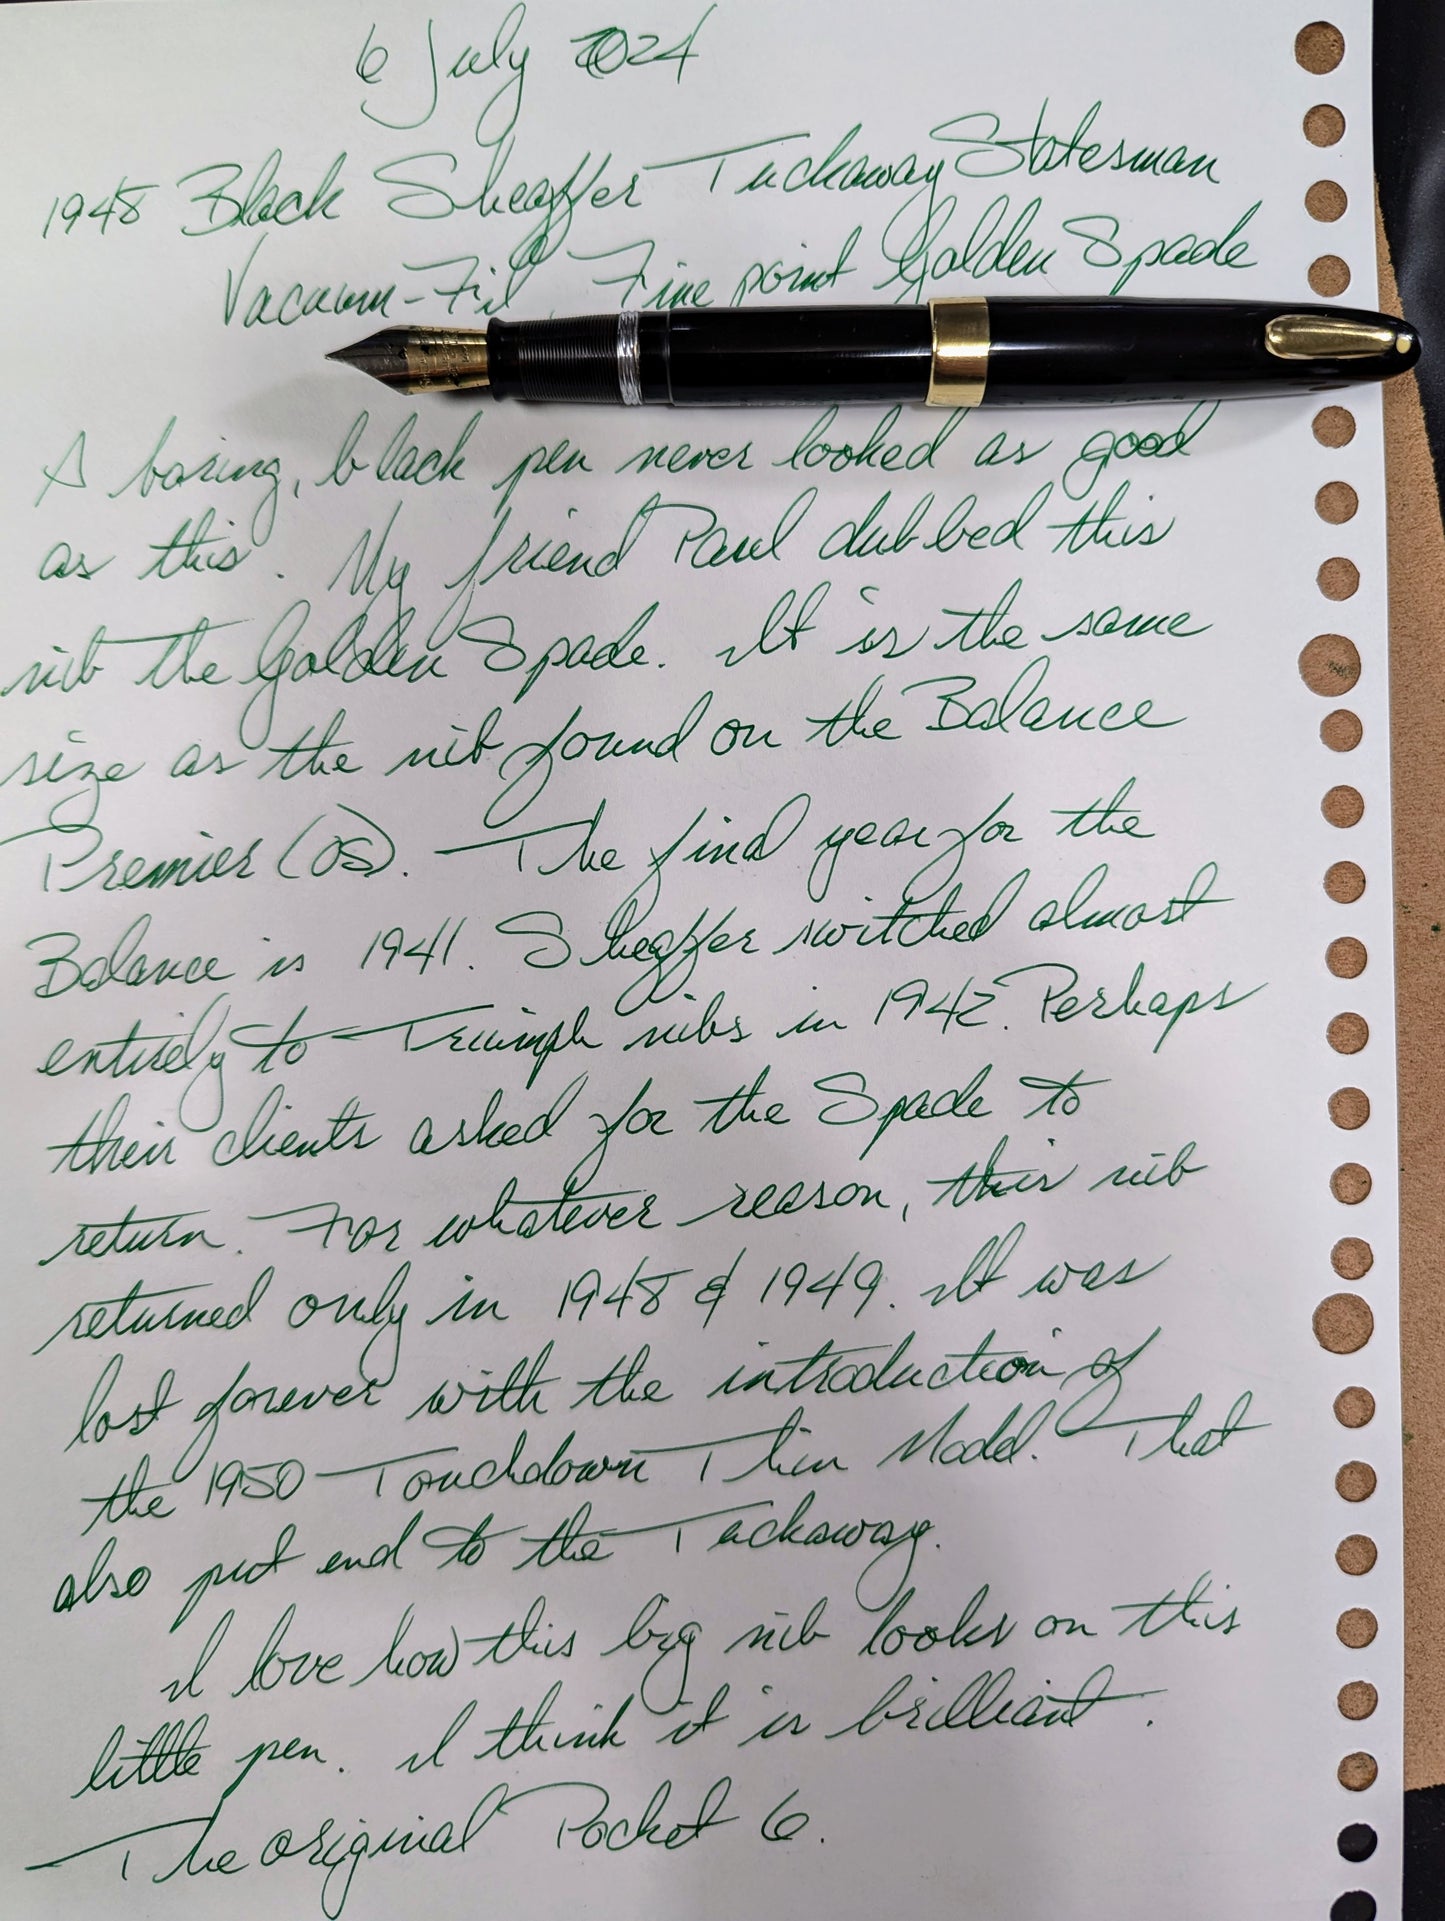 6 July 2024
1948 Black Sheaffer Tuckaway Statesman
Vacuum-Fil, Fine point Golden Spade
A boring, black pen never looked as good
as this. My friend Paul dubbed this
nib the Golden Spade. It is the same
size as the nib found on the Balance
Premier (OS). The final year for the
Balance is 1941. Sheaffer switched almost
entirely to Triumph nibs in 1942. Perhaps
their clients asked for the Spade to
return. For whatever reason, this nib
returned only in 1948 & 1949. It was
lost forever with the introduction of
the 1950 Touchdown Thin Model. That
also put end to the Tuckaway.
I love how this big nib looks on this
little pen. I think it is brilliant.
The original Pocket 6.